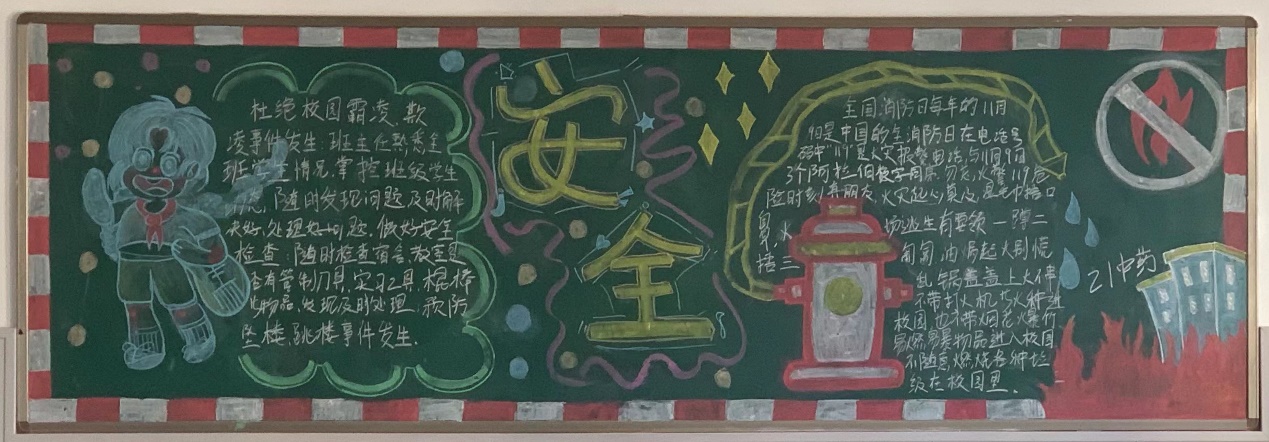 杜绝校园霸凌、欺
凌事件发生.班主任熟悉全
班学生情况.掌控班级学生
情况,随时发现问题及时解
决好.处理好问题.做好安全
检查:随时检查宿舍、教室是
否有管制刀具.实习工具.棍棒
物品,发现及时处理:预防
坠楼、跳楼事件发生.
安
全
全国消防日每年的11月
9日是中国的全消防日在电话号
码中"119"是火灾报警电话,与11月9日
火警119危
险时刻真朋友,火灾起
口
鼻,火场逃生有要领一蹲二
捂三匍匐油锅起火别慌
乱锅盖盖上火
不带打火机与火种进
校园也不带烟花爆竹
易燃易爆物品进入校园
不随意燃烧各种垃
圾在校园里.
21中药